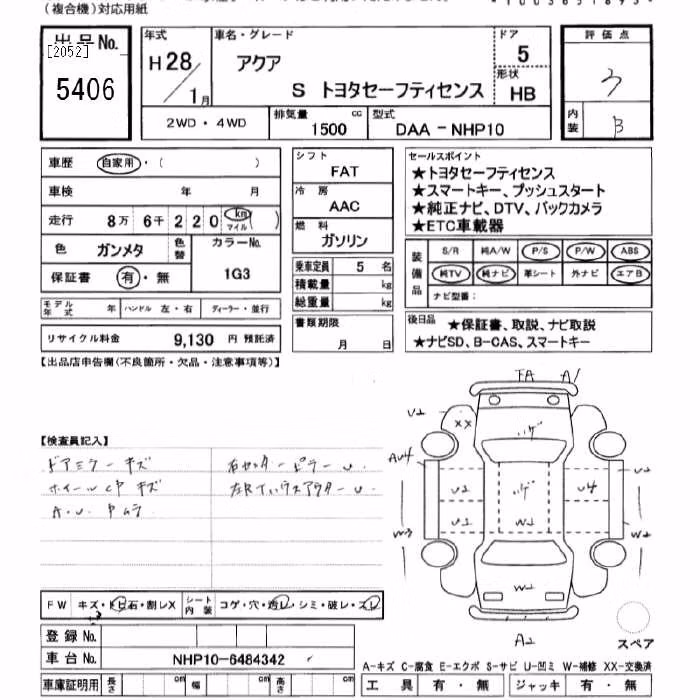 (複合機)対応用紙
出品No.
[2052]
5406
年式
H28/1月
車名・グレード
アクア
S トヨタセーフティセンス
ドア
5
形状
HB
評価点
内装
B
2WD・4WD
排気量
1500 cc
型式
DAA-NHP10
車歴 自家用・( )
車検 年 月
走行 8万 6千 2 2 0 km マイル ( )
色 ガンメタ 色替 カラーNo. 1G3
保証書 有・無
モデル年式 年 ハンドル 左・右 ディーラー・並行
リサイクル料金 9,130 円 預託済
シフト
FAT
冷房
AAC
燃料
ガソリン
乗車定員 5 名
積載量 kg
総重量 kg
書類期限
月 日
セールスポイント
★トヨタセーフティセンス
★スマートキー、プッシュスタート
★純正ナビ、DTV、バックカメラ
★ETC車載器
装備品
S/R 純A/W P/S P/W ABS
純TV 純ナビ 革シート 外ナビ エアB
ナビ型番:
後日品 ★保証書、取説、ナビ取説
★ナビSD、B-CAS、スマートキー
【出品店申告欄(不良箇所・欠品・注意事項等)】
【検査員記入】
ドアミラーキズ
右センターピラーU.
ホイールCPキズ
A.U. Pムラ
FA A1
U2
XX
AU4
U2
U2
U4
U1
W2
W3
W2
W2
A2
スペア
FW キズ・トビ石・割レX
シート内装 コゲ・穴・透レ・シミ・破レ・スレ
登録No.
車台No. NHP10-6484342
車庫証明用 長さ cm 幅 cm 高さ cm
A-キズ C-腐食 E-エクボ S-サビ U-凹ミ W-補修 XX-交換済
工具 有・無 ジャッキ 有・無